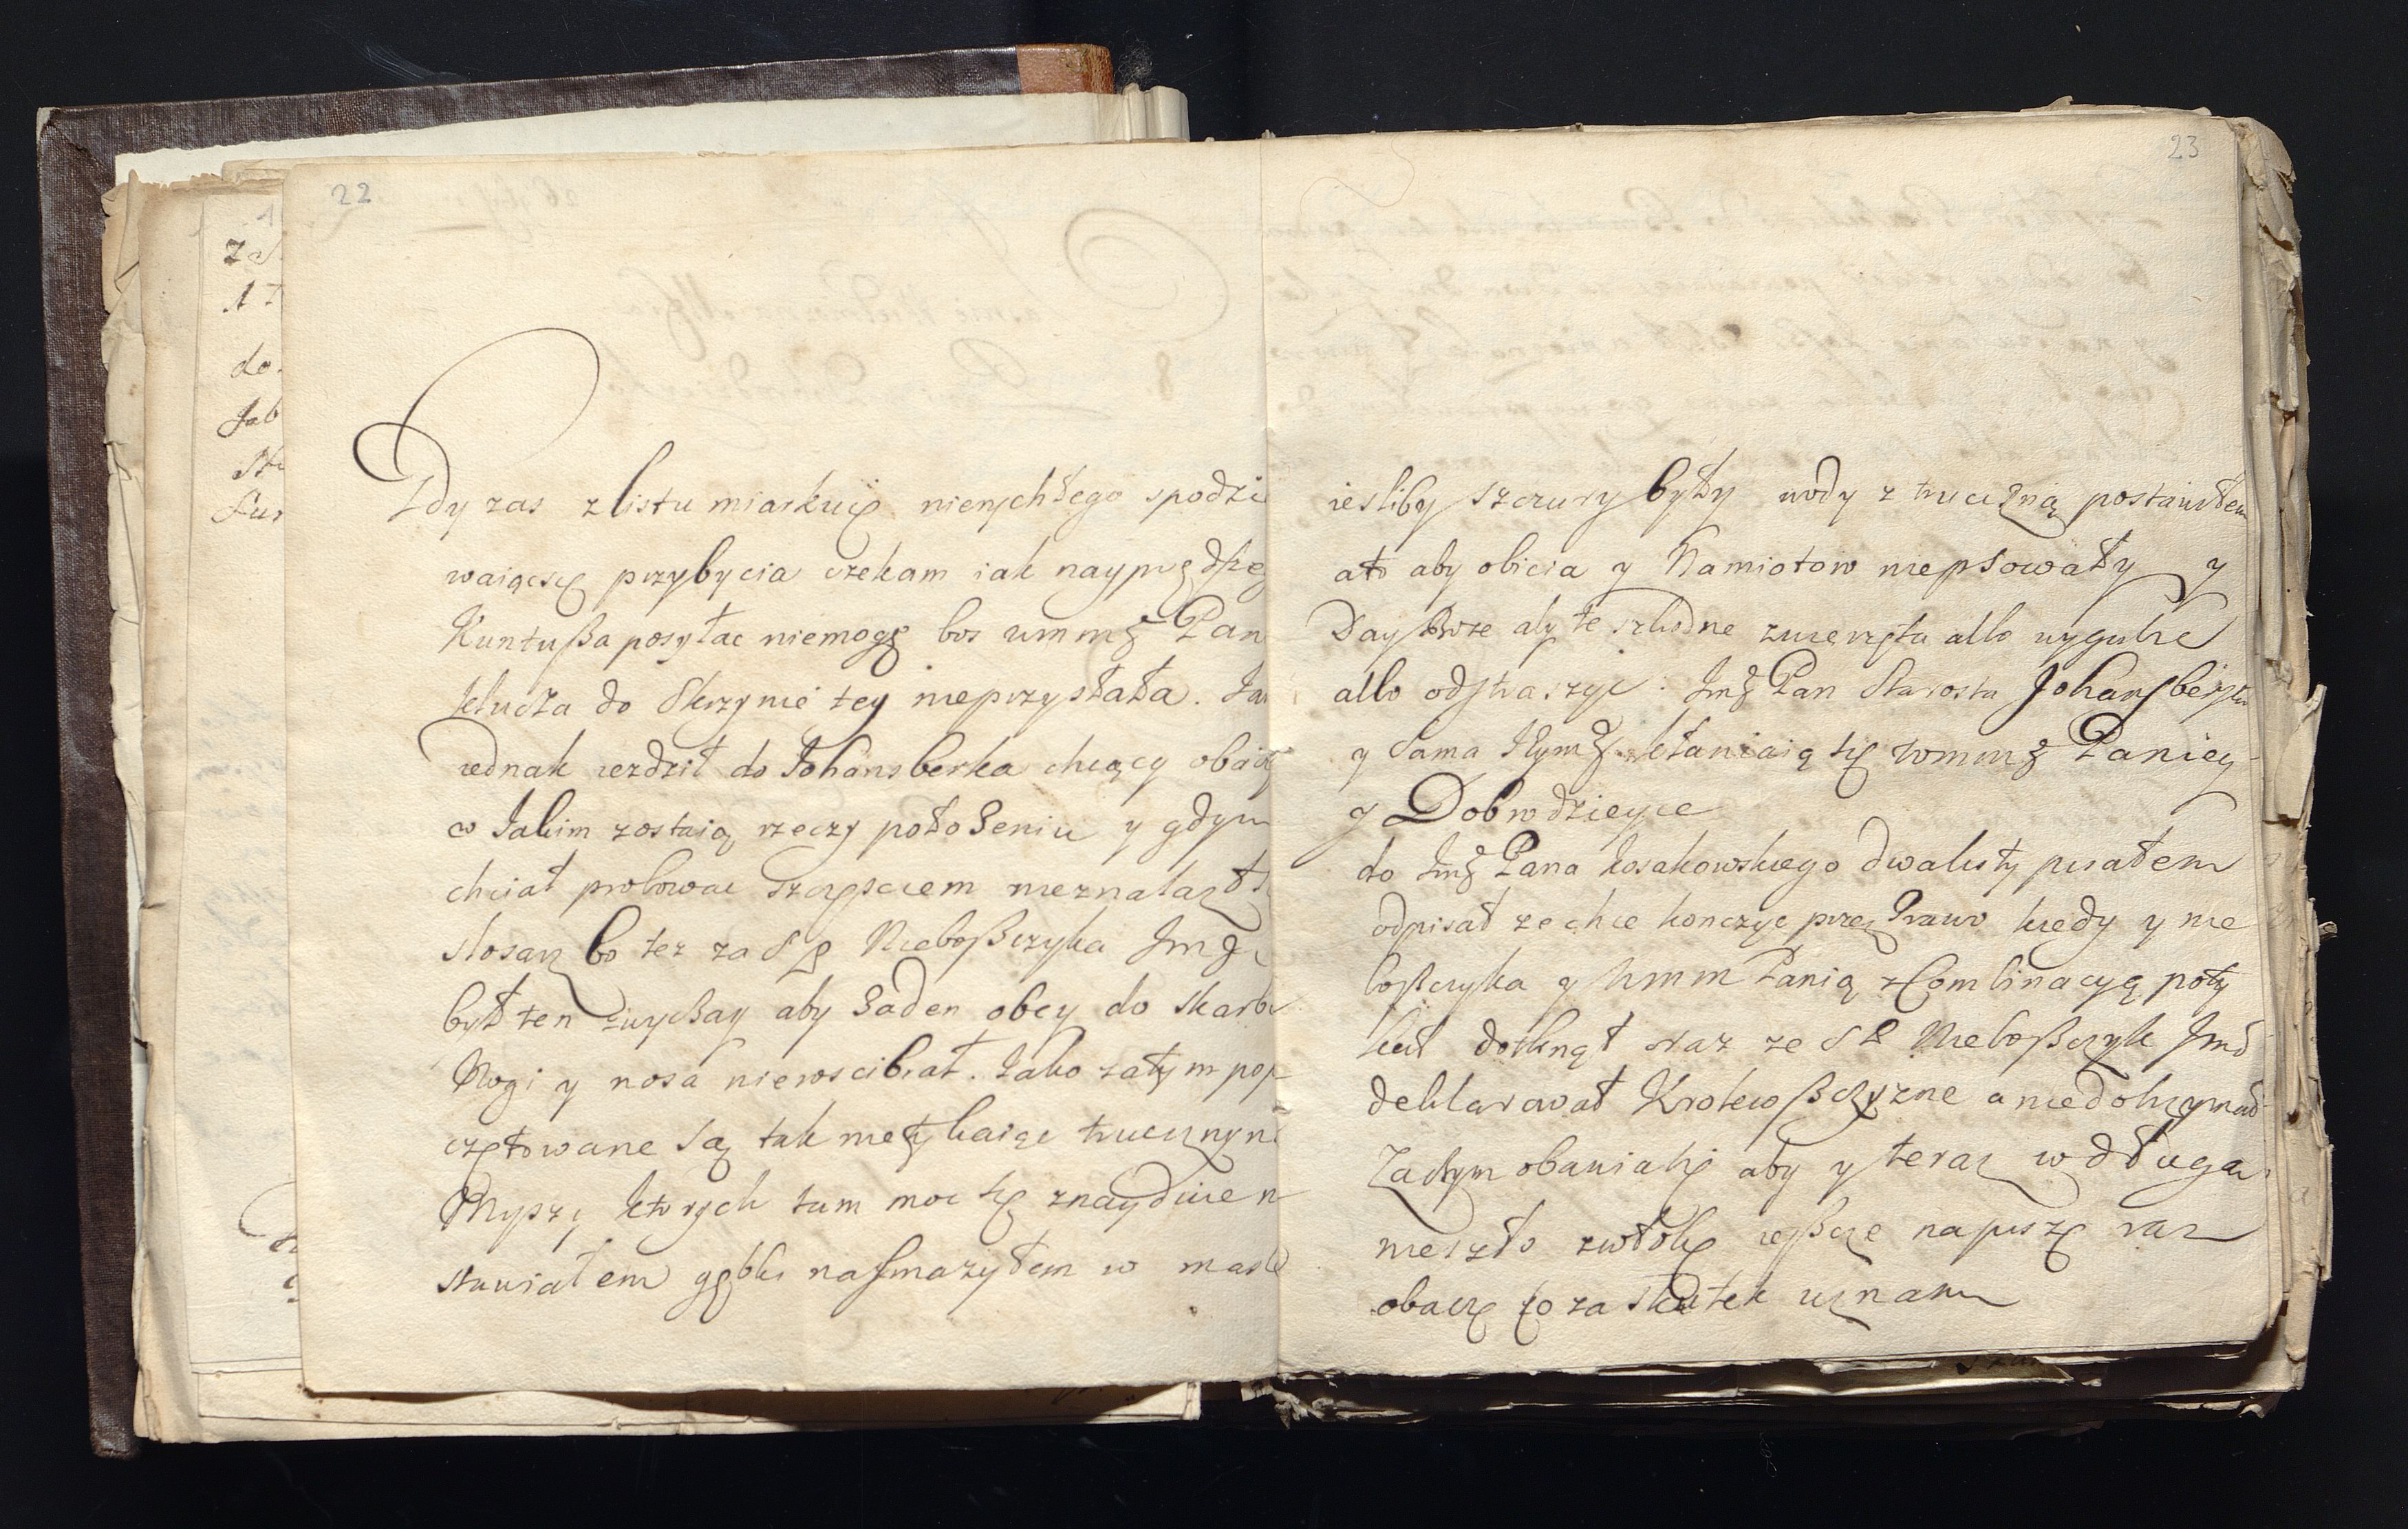 22
Gdy zas z listu miarkuię nierychłego spodzie
waiącsię przybycia czekam iak nayprędsze
Kuntußa posyłac niemogę bos wmmę Pan
klucza do Skrzynie tey nieprzysłała. Ia
iednak iezdził do Iohansberka chcący
w Iakim zostaią rzeczy położeniu y gdym
chciał probowac szczęsciem nieznalazł
slosarz bo tez za S P Nieboßczyka Img
był ten zwyczay aby żaden obcy do skarb
Nogi y nosa niewscibiał. Iako zatym pop
czętowane są tak nietykaiąc trucizny n
Myszy ktorych tam moc się znayduie n
stawiałem gębki nasmażyłem w masle
23
iesliby szczury były wody z trucizną postawiłem
ato aby obicia y Namiotow niepsowały y
Day Boze aby te szkodne zwierzęta albo wygubic
albo odstraszyc. Img Pan Starosta Johansbersk
y Sama Iłymg kłaniaią się wmmg Paniey
y Dobrodzieyce
do Img Pana Kosakowskiego dwa listy pisałem
odpisał ze chce konczyc przez Prawo kiedy y nie
boßczyka y wmm Panią z Combinacyą poty
kał dotknął oraz ze S P Nieboßczyk Imś
deklarował Krolewßczyzne a niedotrzymał
Zaczym obawiaiąc się aby y teraz w długą
nieszło zwłokę ießcze napiszę raz
obaczę co za skutek uznam